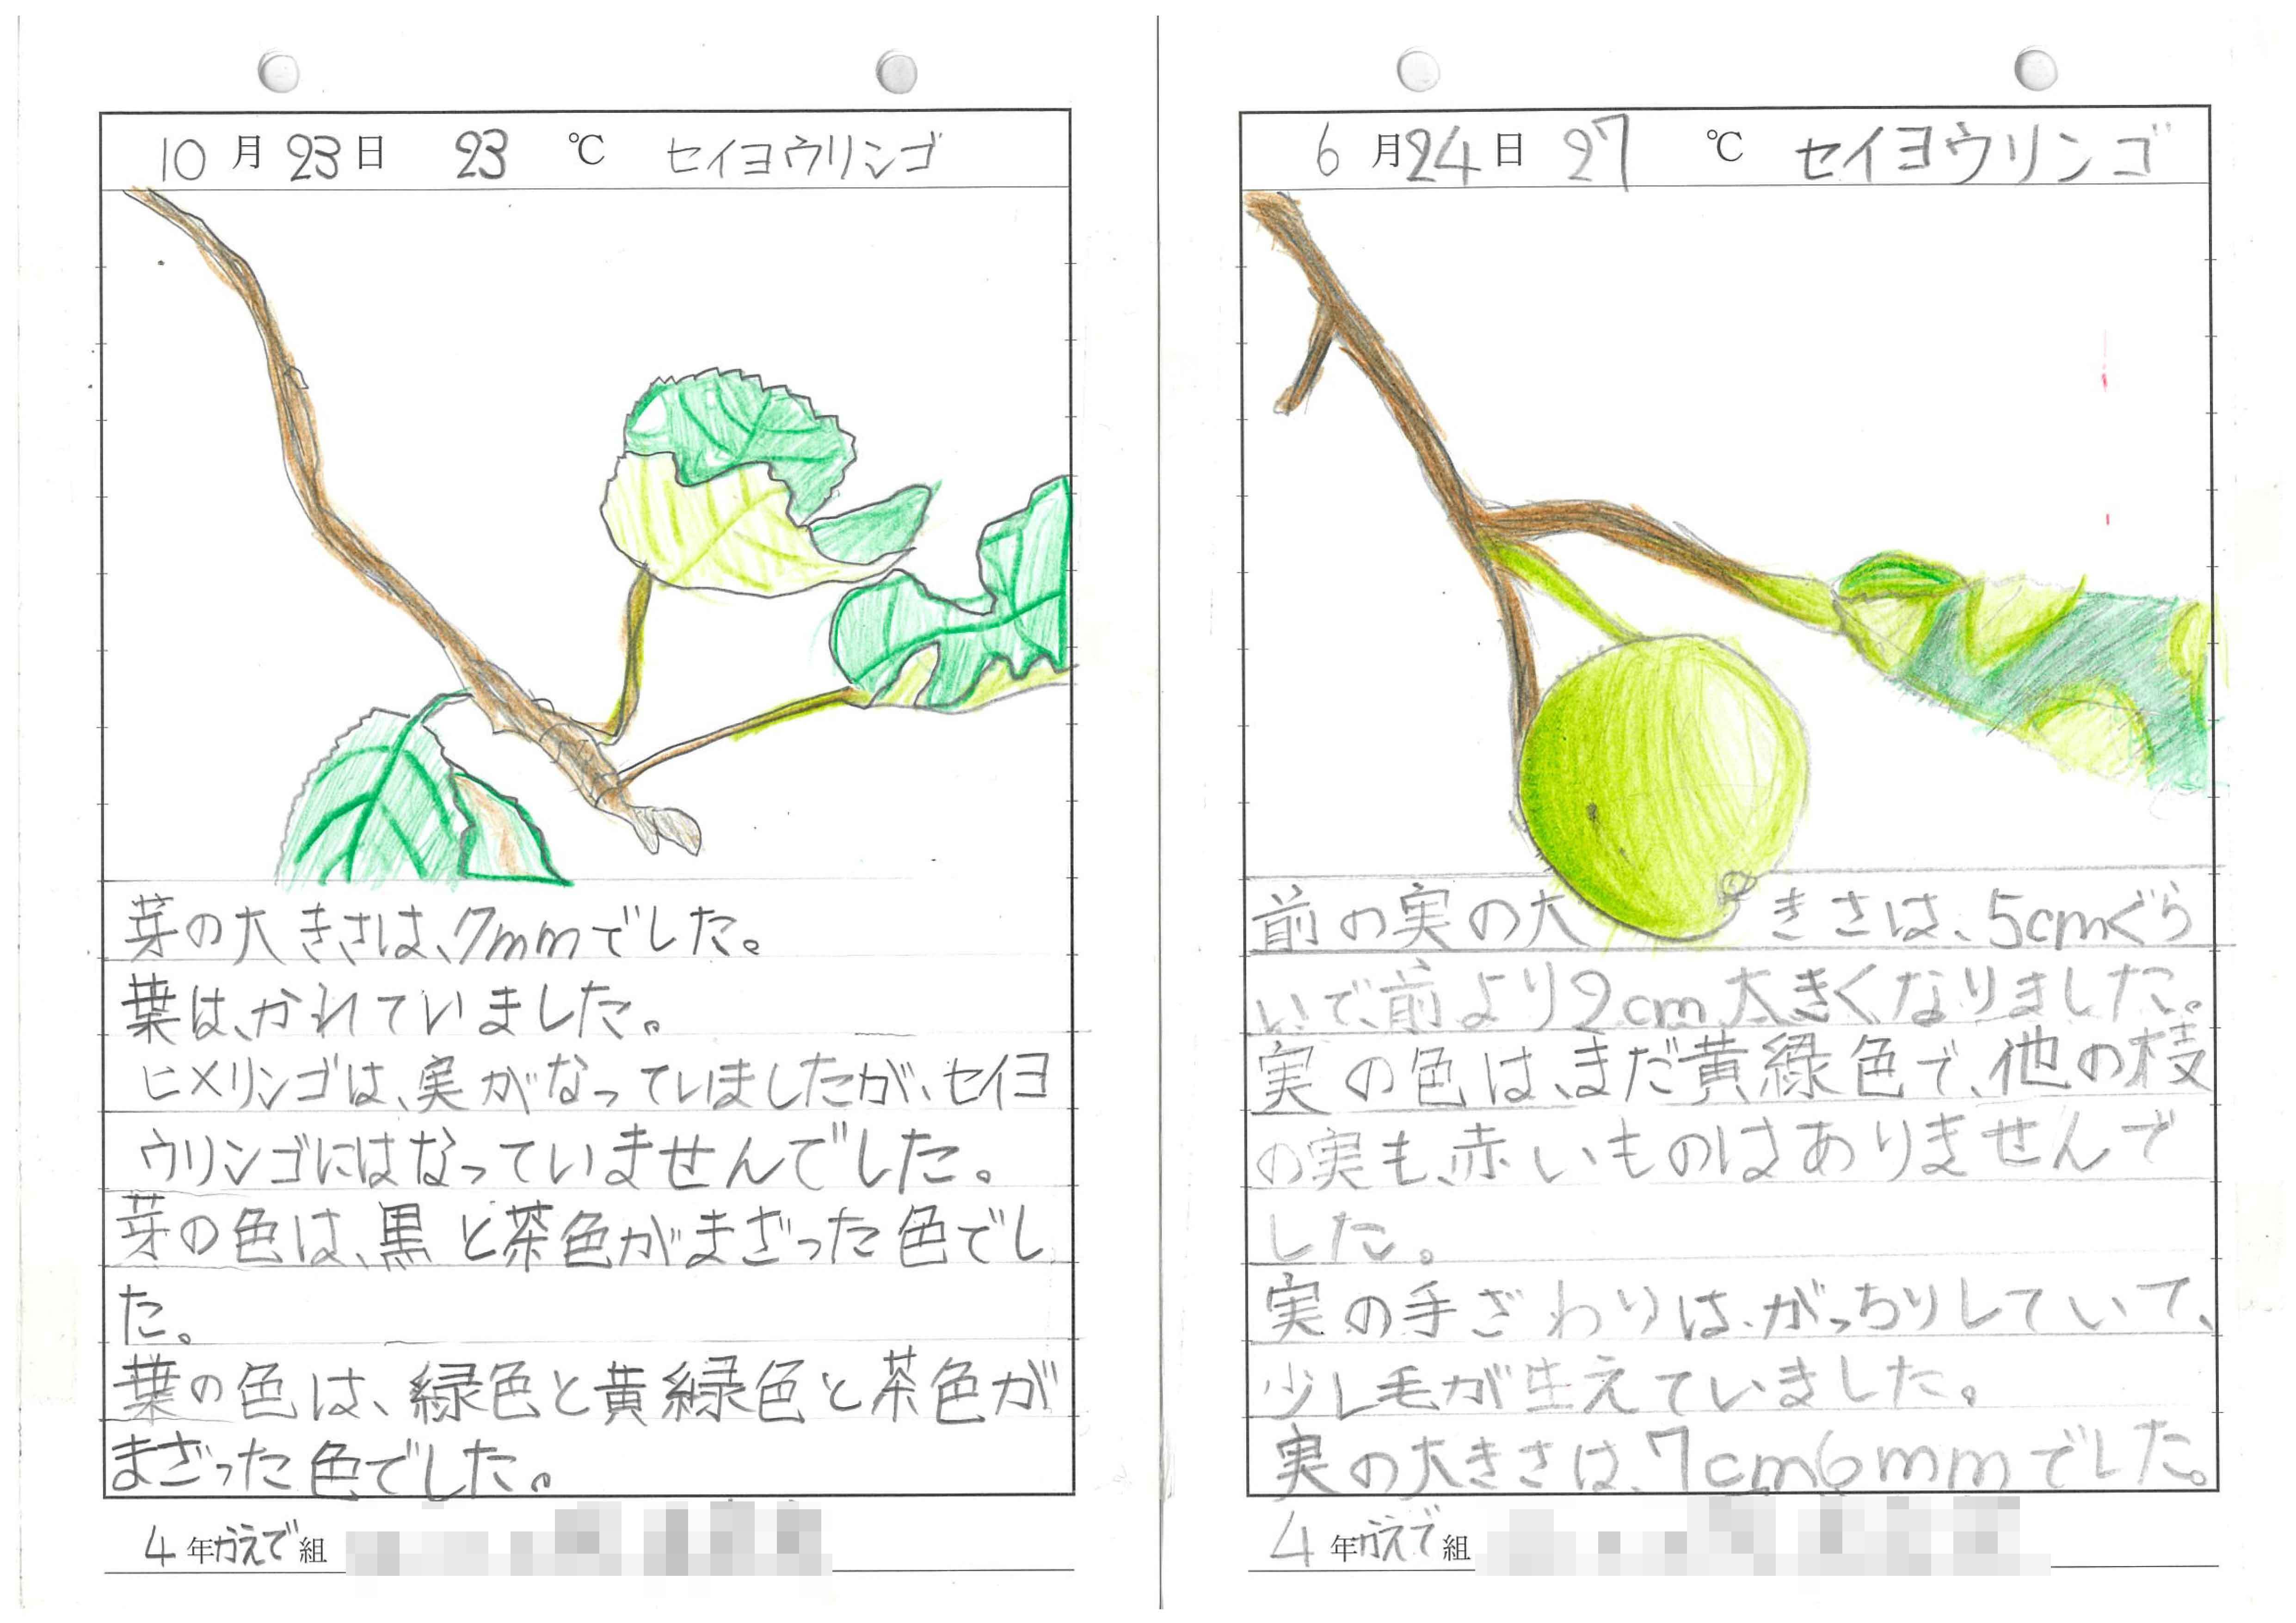 10月23日 23℃ セイヨウリンゴ
芽の大きさは、7mmでした。
葉は、かれていました。
ヒメリンゴは、実がなっていましたが、セイヨ
ウリンゴにはなっていませんでした。
芽の色は、黒と茶色がまざった色でし
た。
葉の色は、緑色と黄緑色と茶色が
まざった色でした。
4年かえで組
6月24日 27℃ セイヨウリンゴ
前の実の大きさは、5cmぐら
いで、前より2cm大きくなりました。
実の色は、まだ黄緑色で、他の枝
の実も、赤いものはありませんで
した。
実の手ざわりは、がっちりしていて、
少し毛が生えていました。
実の大きさは、7cm6mmでした。
4年かえで組